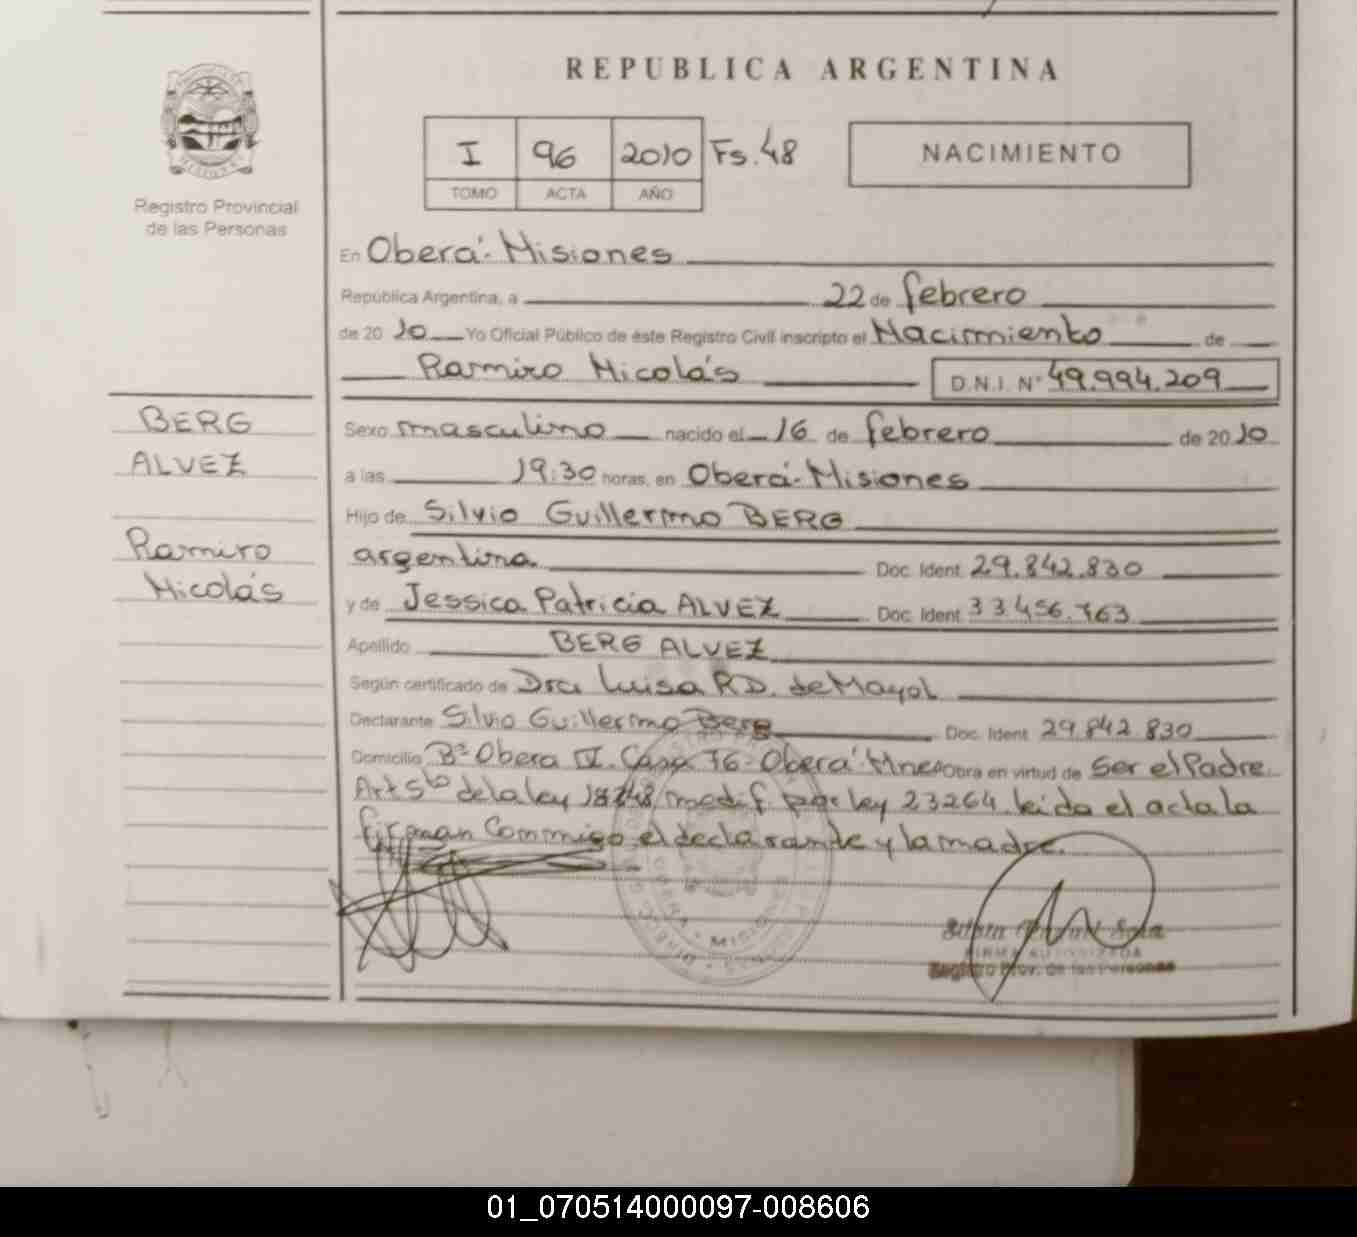 REPUBLICA ARGENTINA
I 96 2010 Fs. 48
TOMO ACTA AÑO
NACIMIENTO
Registro Provincial
de las Personas
En Oberá-Misiones
República Argentina, a 22 de febrero
de 20 10 Yo Oficial Público de éste Registro Civil inscripto el Nacimiento de
Ramiro Nicolás D.N.I. N° 49.994.209
BERG
ALVEZ
Ramiro
Nicolás
Sexo masculino nacido el 16 de febrero de 20 10
a las 19:30 horas, en Oberá-Misiones
Hijo de Silvio Guillermo BERG
argentina Doc. Ident. 29.842.830
y de Jessica Patricia ALVEZ Doc. Ident. 33.456.763
Apellido BERG ALVEZ
Según certificado de Dra Luisa R.D. de Mayol
Declarante Silvio Guillermo Berg Doc. Ident. 29.842.830
Domicilio B° Oberá IV. Casa 76-Oberá-Mnes Obra en virtud de Ser el Padre
Art 5to de la ley 18248 modif por ley 23264. leida el acta la
firman Conmigo el declarante y la madre.
OBERA - MISIONES
FIRMA AUTORIZADA
Registro Prov. de las Personas
01_070514000097-008606